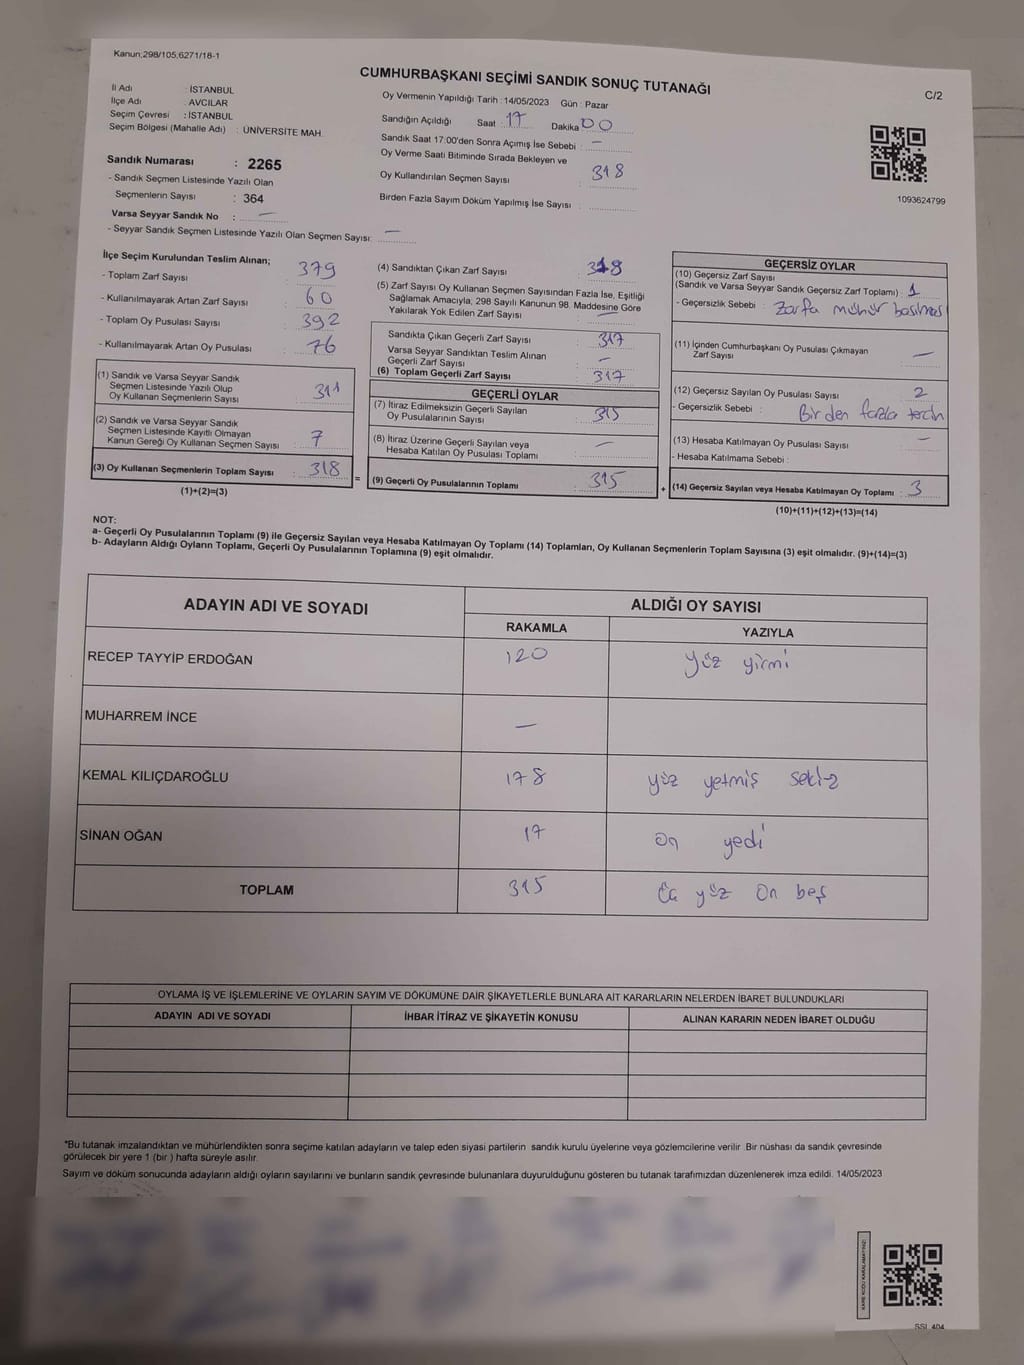 Kanun;298/105;6271/18-1
CUMHURBAŞKANI SEÇİMİ SANDIK SONUÇ TUTANAĞI
C/2
İl Adı : İSTANBUL
İlçe Adı : AVCILAR
Seçim Çevresi : İSTANBUL
Seçim Bölgesi (Mahalle Adı) : ÜNİVERSİTE MAH.
Sandık Numarası : 2265
- Sandık Seçmen Listesinde Yazılı Olan
Seçmenlerin Sayısı : 364
Varsa Seyyar Sandık No : —
- Seyyar Sandık Seçmen Listesinde Yazılı Olan Seçmen Sayısı: —
Oy Vermenin Yapıldığı Tarih : 14/05/2023 Gün : Pazar
Sandığın Açıldığı Saat : 17 Dakika : 00
Sandık Saat 17:00'den Sonra Açımış İse Sebebi : —
Oy Verme Saati Bitiminde Sırada Bekleyen ve
Oy Kullandırılan Seçmen Sayısı : 318
Birden Fazla Sayım Döküm Yapılmış İse Sayısı :
1093624799
İlçe Seçim Kurulundan Teslim Alınan;
- Toplam Zarf Sayısı : 379
- Kullanılmayarak Artan Zarf Sayısı : 60
- Toplam Oy Pusulası Sayısı : 392
- Kullanılmayarak Artan Oy Pusulası : 76
(1) Sandık ve Varsa Seyyar Sandık
Seçmen Listesinde Yazılı Olup
Oy Kullanan Seçmenlerin Sayısı : 311
(2) Sandık ve Varsa Seyyar Sandık
Seçmen Listesinde Kayıtlı Olmayan
Kanun Gereği Oy Kullanan Seçmen Sayısı : 7
(3) Oy Kullanan Seçmenlerin Toplam Sayısı : 318
(1)+(2)=(3)
(4) Sandıktan Çıkan Zarf Sayısı : 318
(5) Zarf Sayısı Oy Kullanan Seçmen Sayısından Fazla İse, Eşitliği
Sağlamak Amacıyla; 298 Sayılı Kanunun 98. Maddesine Göre
Yakılarak Yok Edilen Zarf Sayısı : —
Sandıkta Çıkan Geçerli Zarf Sayısı : 317
Varsa Seyyar Sandıktan Teslim Alınan
Geçerli Zarf Sayısı : —
(6) Toplam Geçerli Zarf Sayısı : 317
GEÇERLİ OYLAR
(7) İtiraz Edilmeksizin Geçerli Sayılan
Oy Pusulalarının Sayısı : 315
(8) İtiraz Üzerine Geçerli Sayılan veya
Hesaba Katılan Oy Pusulası Toplamı : —
= (9) Geçerli Oy Pusulalarının Toplamı : 315
GEÇERSİZ OYLAR
(10) Geçersiz Zarf Sayısı
(Sandık ve Varsa Seyyar Sandık Geçersiz Zarf Toplamı) : 1
- Geçersizlik Sebebi : Zarfa mühür
(11) İçinden Cumhurbaşkanı Oy Pusulası Çıkmayan
Zarf Sayısı : —
(12) Geçersiz Sayılan Oy Pusulası Sayısı : 2
- Geçersizlik Sebebi : Birden fazla tercih
(13) Hesaba Katılmayan Oy Pusulası Sayısı : —
- Hesaba Katılmama Sebebi :
+ (14) Geçersiz Sayılan veya Hesaba Katılmayan Oy Toplamı : 3
(10)+(11)+(12)+(13)=(14)
NOT:
a- Geçerli Oy Pusulalarının Toplamı (9) ile Geçersiz Sayılan veya Hesaba Katılmayan Oy Toplamı (14) Toplamları, Oy Kullanan Seçmenlerin Toplam Sayısına (3) eşit olmalıdır. (9)+(14)=(3)
b- Adayların Aldığı Oyların Toplamı, Geçerli Oy Pusulalarının Toplamına (9) eşit olmalıdır.
ADAYIN ADI VE SOYADI
ALDIĞI OY SAYISI
RAKAMLA YAZIYLA
RECEP TAYYİP ERDOĞAN 120 yüz yirmi
MUHARREM İNCE —
KEMAL KILIÇDAROĞLU 178 yüz yetmiş sekiz
SİNAN OĞAN 17 on yedi
TOPLAM 315 Üç yüz On beş
OYLAMA İŞ VE İŞLEMLERİNE VE OYLARIN SAYIM VE DÖKÜMÜNE DAİR ŞİKAYETLERLE BUNLARA AİT KARARLARIN NELERDEN İBARET BULUNDUKLARI
ADAYIN ADI VE SOYADI İHBAR İTİRAZ VE ŞİKAYETİN KONUSU ALINAN KARARIN NEDEN İBARET OLDUĞU
*Bu tutanak imzalandıktan ve mühürlendikten sonra seçime katılan adayların ve talep eden siyasi partilerin sandık kurulu üyelerine veya gözlemcilerine verilir. Bir nüshası da sandık çevresinde
görülecek bir yere 1 (bir ) hafta süreyle asılır.
Sayım ve döküm sonucunda adayların aldığı oyların sayılarını ve bunların sandık çevresinde bulunanlara duyurulduğunu gösteren bu tutanak tarafımızdan düzenlenerek imza edildi. 14/05/2023
KARE KODU KARALAMAYINIZ!
SSL 404